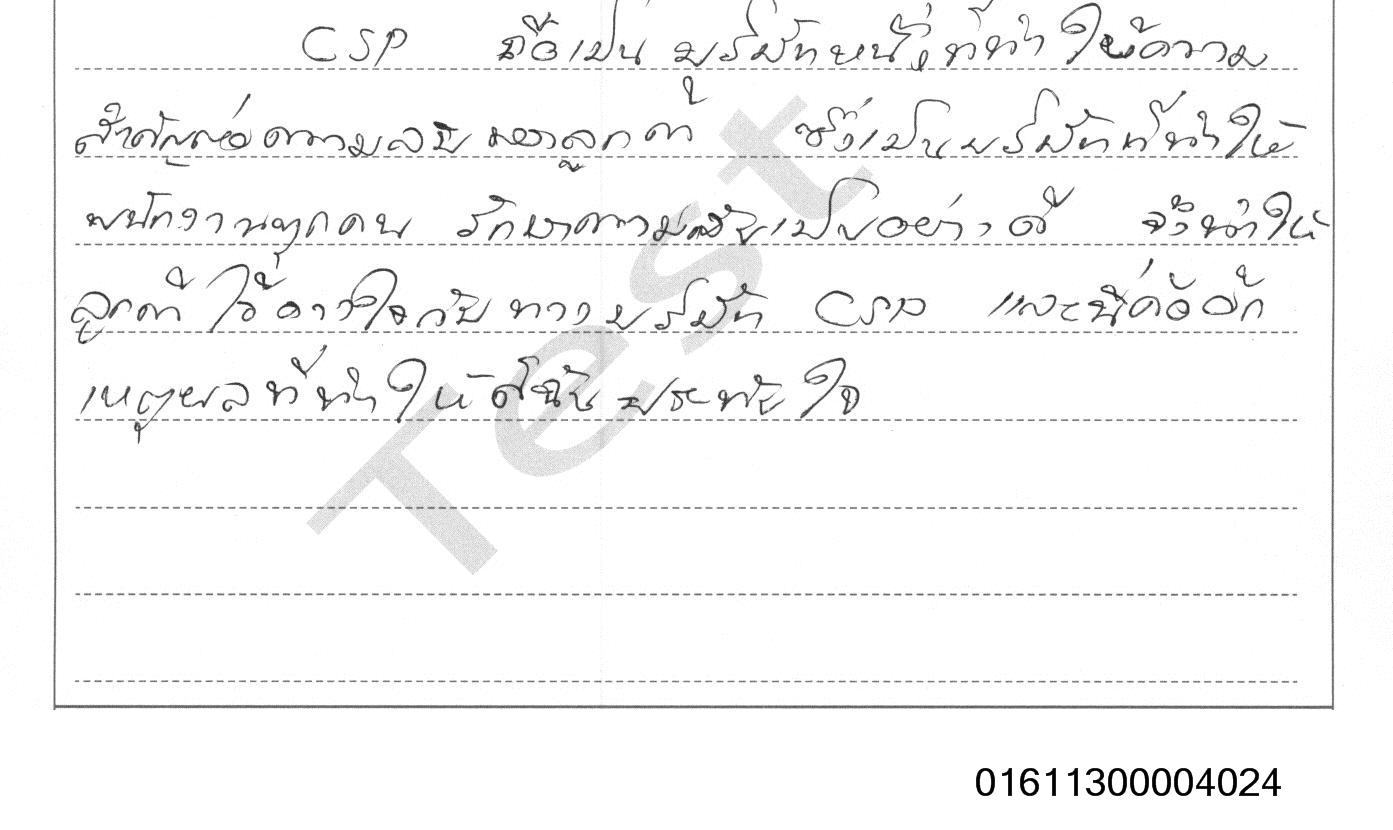 CSP ถือเป็น บริษัทหนึ่งที่ทำ ให้ความ
สำคัญต่อความลับ ของลูกค้า ซึ่งเป็นบริษัทที่ทำให้
พนักงานทุกคน รักษาความลับเป็นอย่างดี จึงทำให้
ลูกค้า ไว้วางใจกับ ทางบริษัท CSP และนี่คืออีก
เหตุผลที่ทำให้ดิฉัน ประทับใจ
Test
01611300004024